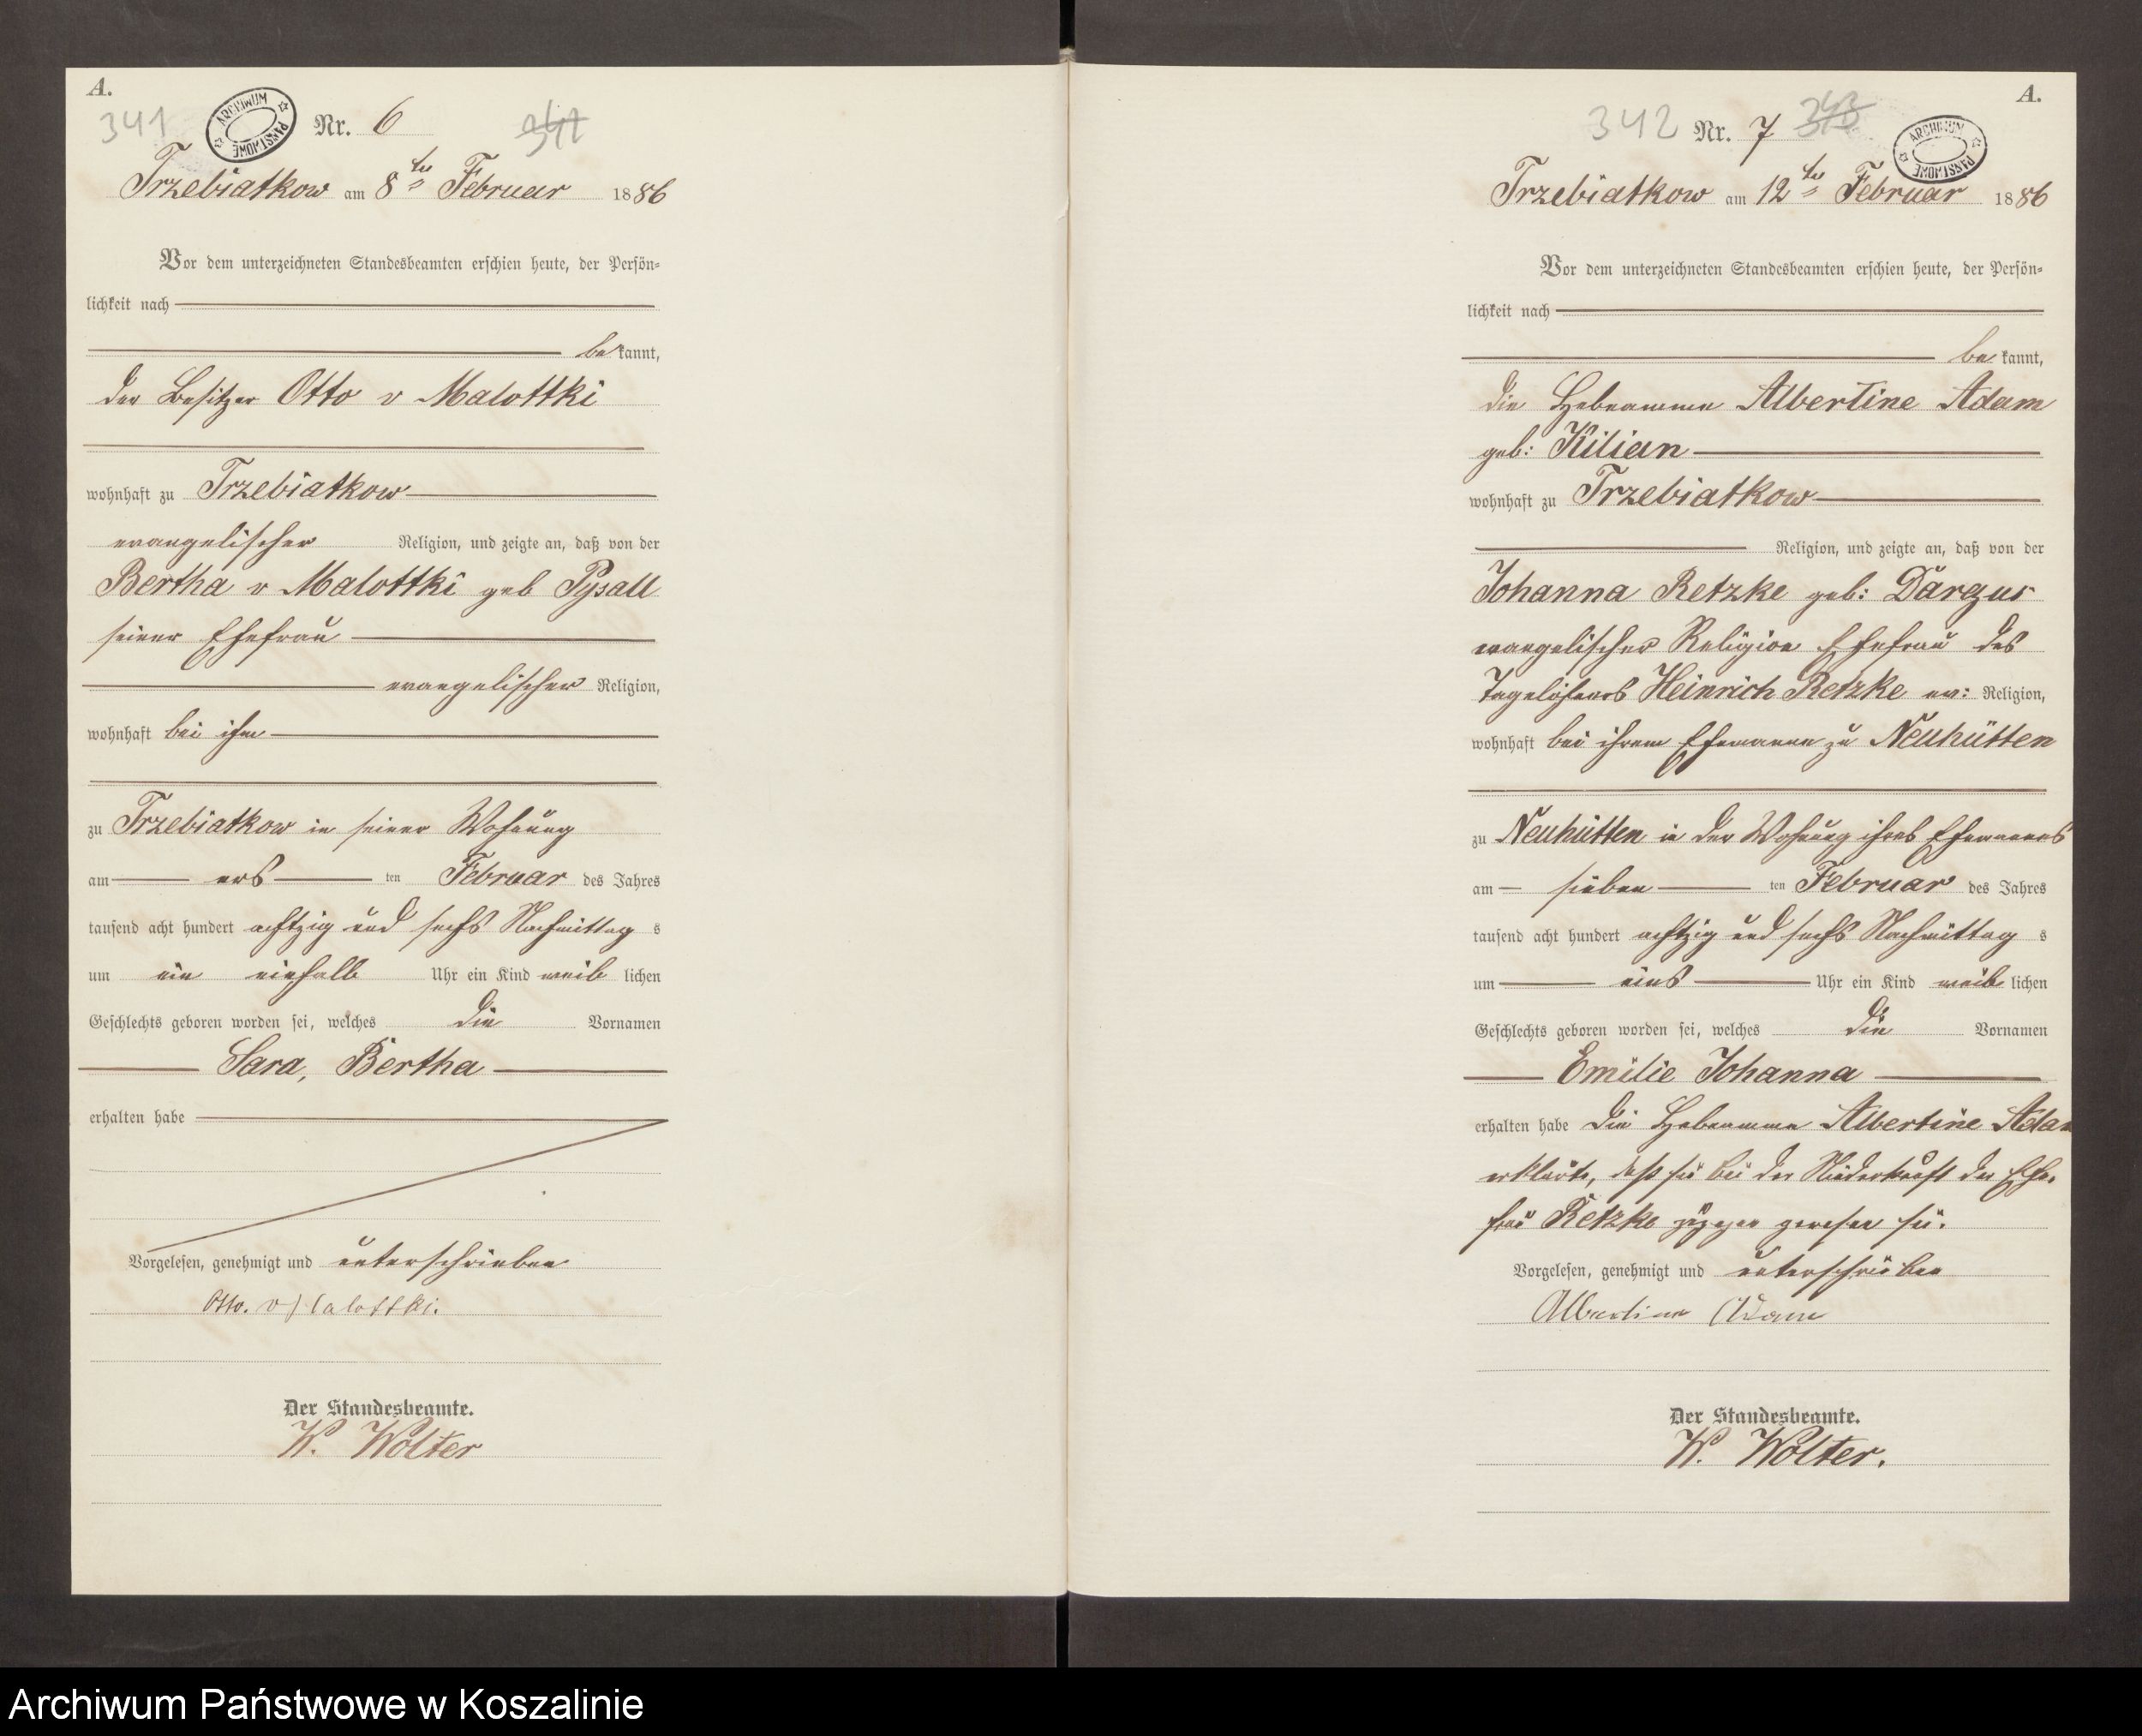 A.
341
ARCHIWUM PAŃSTWOWE
Nr. 6
Trzebiatkow am 8ten Februar 1886
Vor dem unterzeichneten Standesbeamten erschien heute, der Persön-
lichkeit nach
be kannt,
der Besitzer Otto v Malottki
wohnhaft zu Trzebiatkow
evangelischer Religion, und zeigte an, daß von der
Bertha v Malottki geb Pysall
seiner Ehefrau
evangelischer Religion,
wohnhaft bei ihm
zu Trzebiatkow in seiner Wohnung
am ersten Februar des Jahres
tausend acht hundert achtzig und sechs Nachmittags
um ein einhalb Uhr ein Kind weiblichen
Geschlechts geboren worden sei, welches die Vornamen
Sara, Bertha
erhalten habe
Vorgelesen, genehmigt und unterschrieben
Otto. v Malottki.
Der Standesbeamte.
W. Wolter
A.
342
Nr. 7
343
ARCHIWUM PAŃSTWOWE
Trzebiatkow am 12ten Februar 1886
Vor dem unterzeichneten Standesbeamten erschien heute, der Persön-
lichkeit nach
be kannt,
die Hebeamme Albertine Adam
geb: Kilian
wohnhaft zu Trzebiatkow
Religion, und zeigte an, daß von der
Johanna Retzke geb: Dargus
evangelischer Religion Ehefrau des
Tagelöhners Heinrich Retzke ev: Religion,
wohnhaft bei ihrem Ehemanne zu Neuhütten
zu Neuhütten in der Wohnung ihres Ehemannes
am sieben ten Februar des Jahres
tausend acht hundert achtzig und sechs Nachmittags
um eins Uhr ein Kind weiblichen
Geschlechts geboren worden sei, welches die Vornamen
Emilie Johanna
erhalten habe die Hebeamme Albertine Adam
erklärte, daß sie bei der Niederkunft der Ehe-
frau Retzke zugegen gewesen sei.
Vorgelesen, genehmigt und unterschrieben
Albertine Adam
Der Standesbeamte.
W. Wolter.
Archiwum Państwowe w Koszalinie